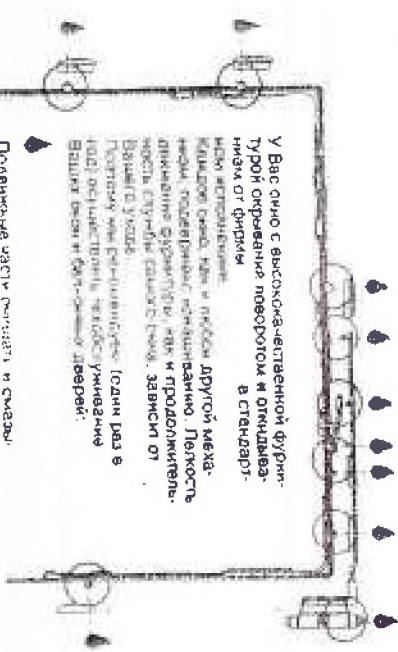 У Вас окно с высококачественной фурни-
турой окрывание поворотом и откидыва-
низм от фирмы в стандарт-
ном исполнении.
Каждое окно, как и любой другой меха-
низм, подвержено изнашиванию. Легкость
движения фурнитуры, как и продолжитель-
ность службы самого окна, зависит от
Вашего ухода.
Поэтому мы рекомендуем (один раз в
год) осуществлять техобслуживание
Ваших окон и балконных дверей:
Подвижные части очищать и смазы-